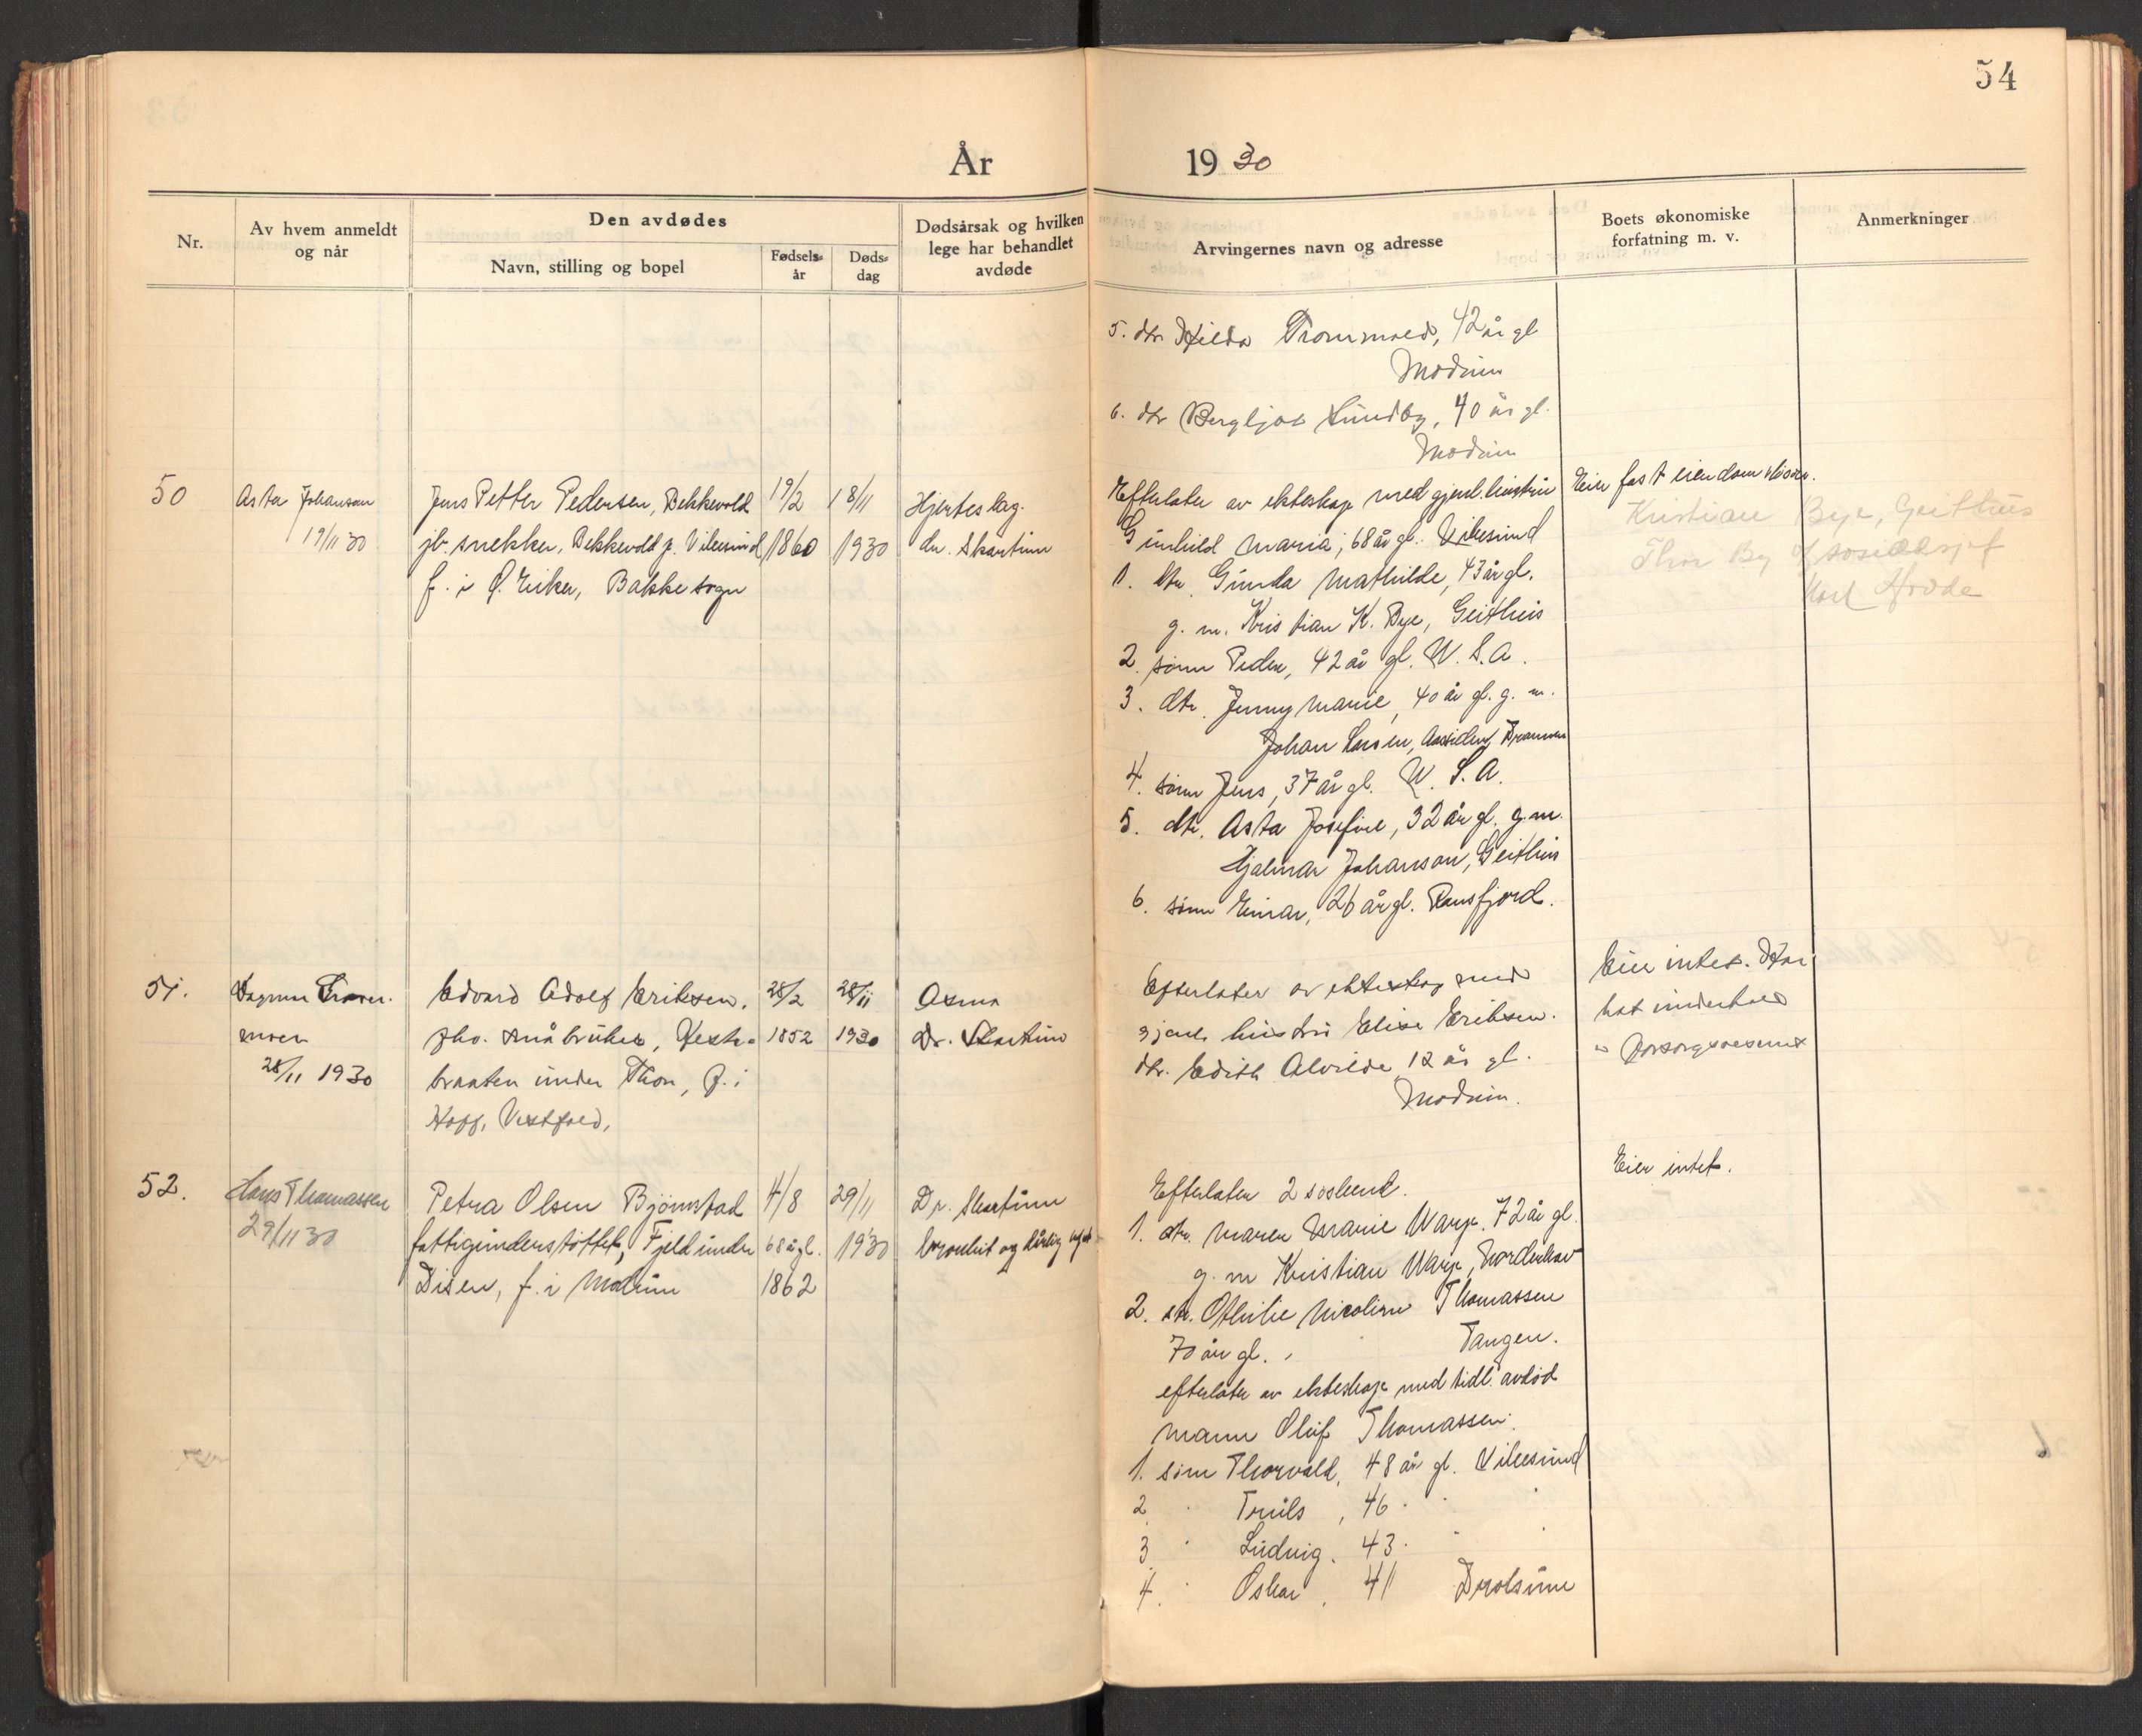 54
År 1930
Nr.
Av hvem anmeldt
og når
Den avdødes
Navn, stilling og bopel
Fødsels-
år
Døds-
dag
Dødsårsak og hvilken
lege har behandlet
avdøde
Arvingernes navn og adresse
Boets økonomiske
forfatning m. v.
Anmerkninger
5. dtr Hilda 42 år gl
Modum
6. dtr Bergljot Sundby, 40 år gl.
Modum
50
Asta Johanson
19/11 30
Jens Petter Pedersen, Bekkevold
jb. snekker, Bekkevold p. Vikesund
f. i Ø. Eiker, Bakke sogn
19/2
1860
18/11
1930
Hjerteslag.
dr. Skartum
Efterlater av ekteskap med gjenl. hustru
Gunhild Maria, 68 år gl. Vikesund
1. dtr. Gunda Mathilde, 43 år gl.
g. m. Kristian K. Bye, Geithus
2. sønn Peder, 42 år gl. U. S. A.
3. dtr. Jenny Marie, 40 år gl. g. m.
Johan Larsen, Aassiden, Drammen
4. sønn Jens, 37 år gl. U. S. A.
5. dtr. Asta Josefine, 32 år gl. g. m.
Hjalmar Johanson, Geithus
6. sønn Einar, 26 år gl. Ransfjord.
Eier fast eiendom
Kristian Bye, Geithus
Thor By
Karl Hovde
51.
28/11 1930
Edvard Adolf Eriksen,
fhv. småbruker,
braaten under Thon, f. i
Hoff, Vestfold,
28/2
1852
28/11
1930
Asma
Dr. Skartum
Efterlater av ekteskap med
gjenl. hustru Elise Eriksen.
dtr. Edith Alvilde 12 år gl.
Modum.
Eier intet. Har
hat underhold
av Forsorgsvesenet
52.
Hans Thomassen
29/11 30
Petra Olsen Bjørnstad
fattigunderstøttet, Fjeld under
Disen, f. i Modum
4/8
68 år gl.
1862
29/11
1930
Dr. Skartum
bronkit og dårlig hjerte
Efterlater 2 søskend.
1. str. Maren Marie Warp, 72 år gl.
g. m Kristian Warp, Norderhov
2. str. Othilie Nicoline Thomassen
70 år gl. Tangen.
efterlater av ekteskap med tidl. avdød
mann Oluf Thomassen.
1. sønn Thorvald, 48 år gl. Vikesund
2 " Truls, 46 " "
3 " Ludvig, 43 " "
4. " Oskar, 41 Drolsum
Eier intet.